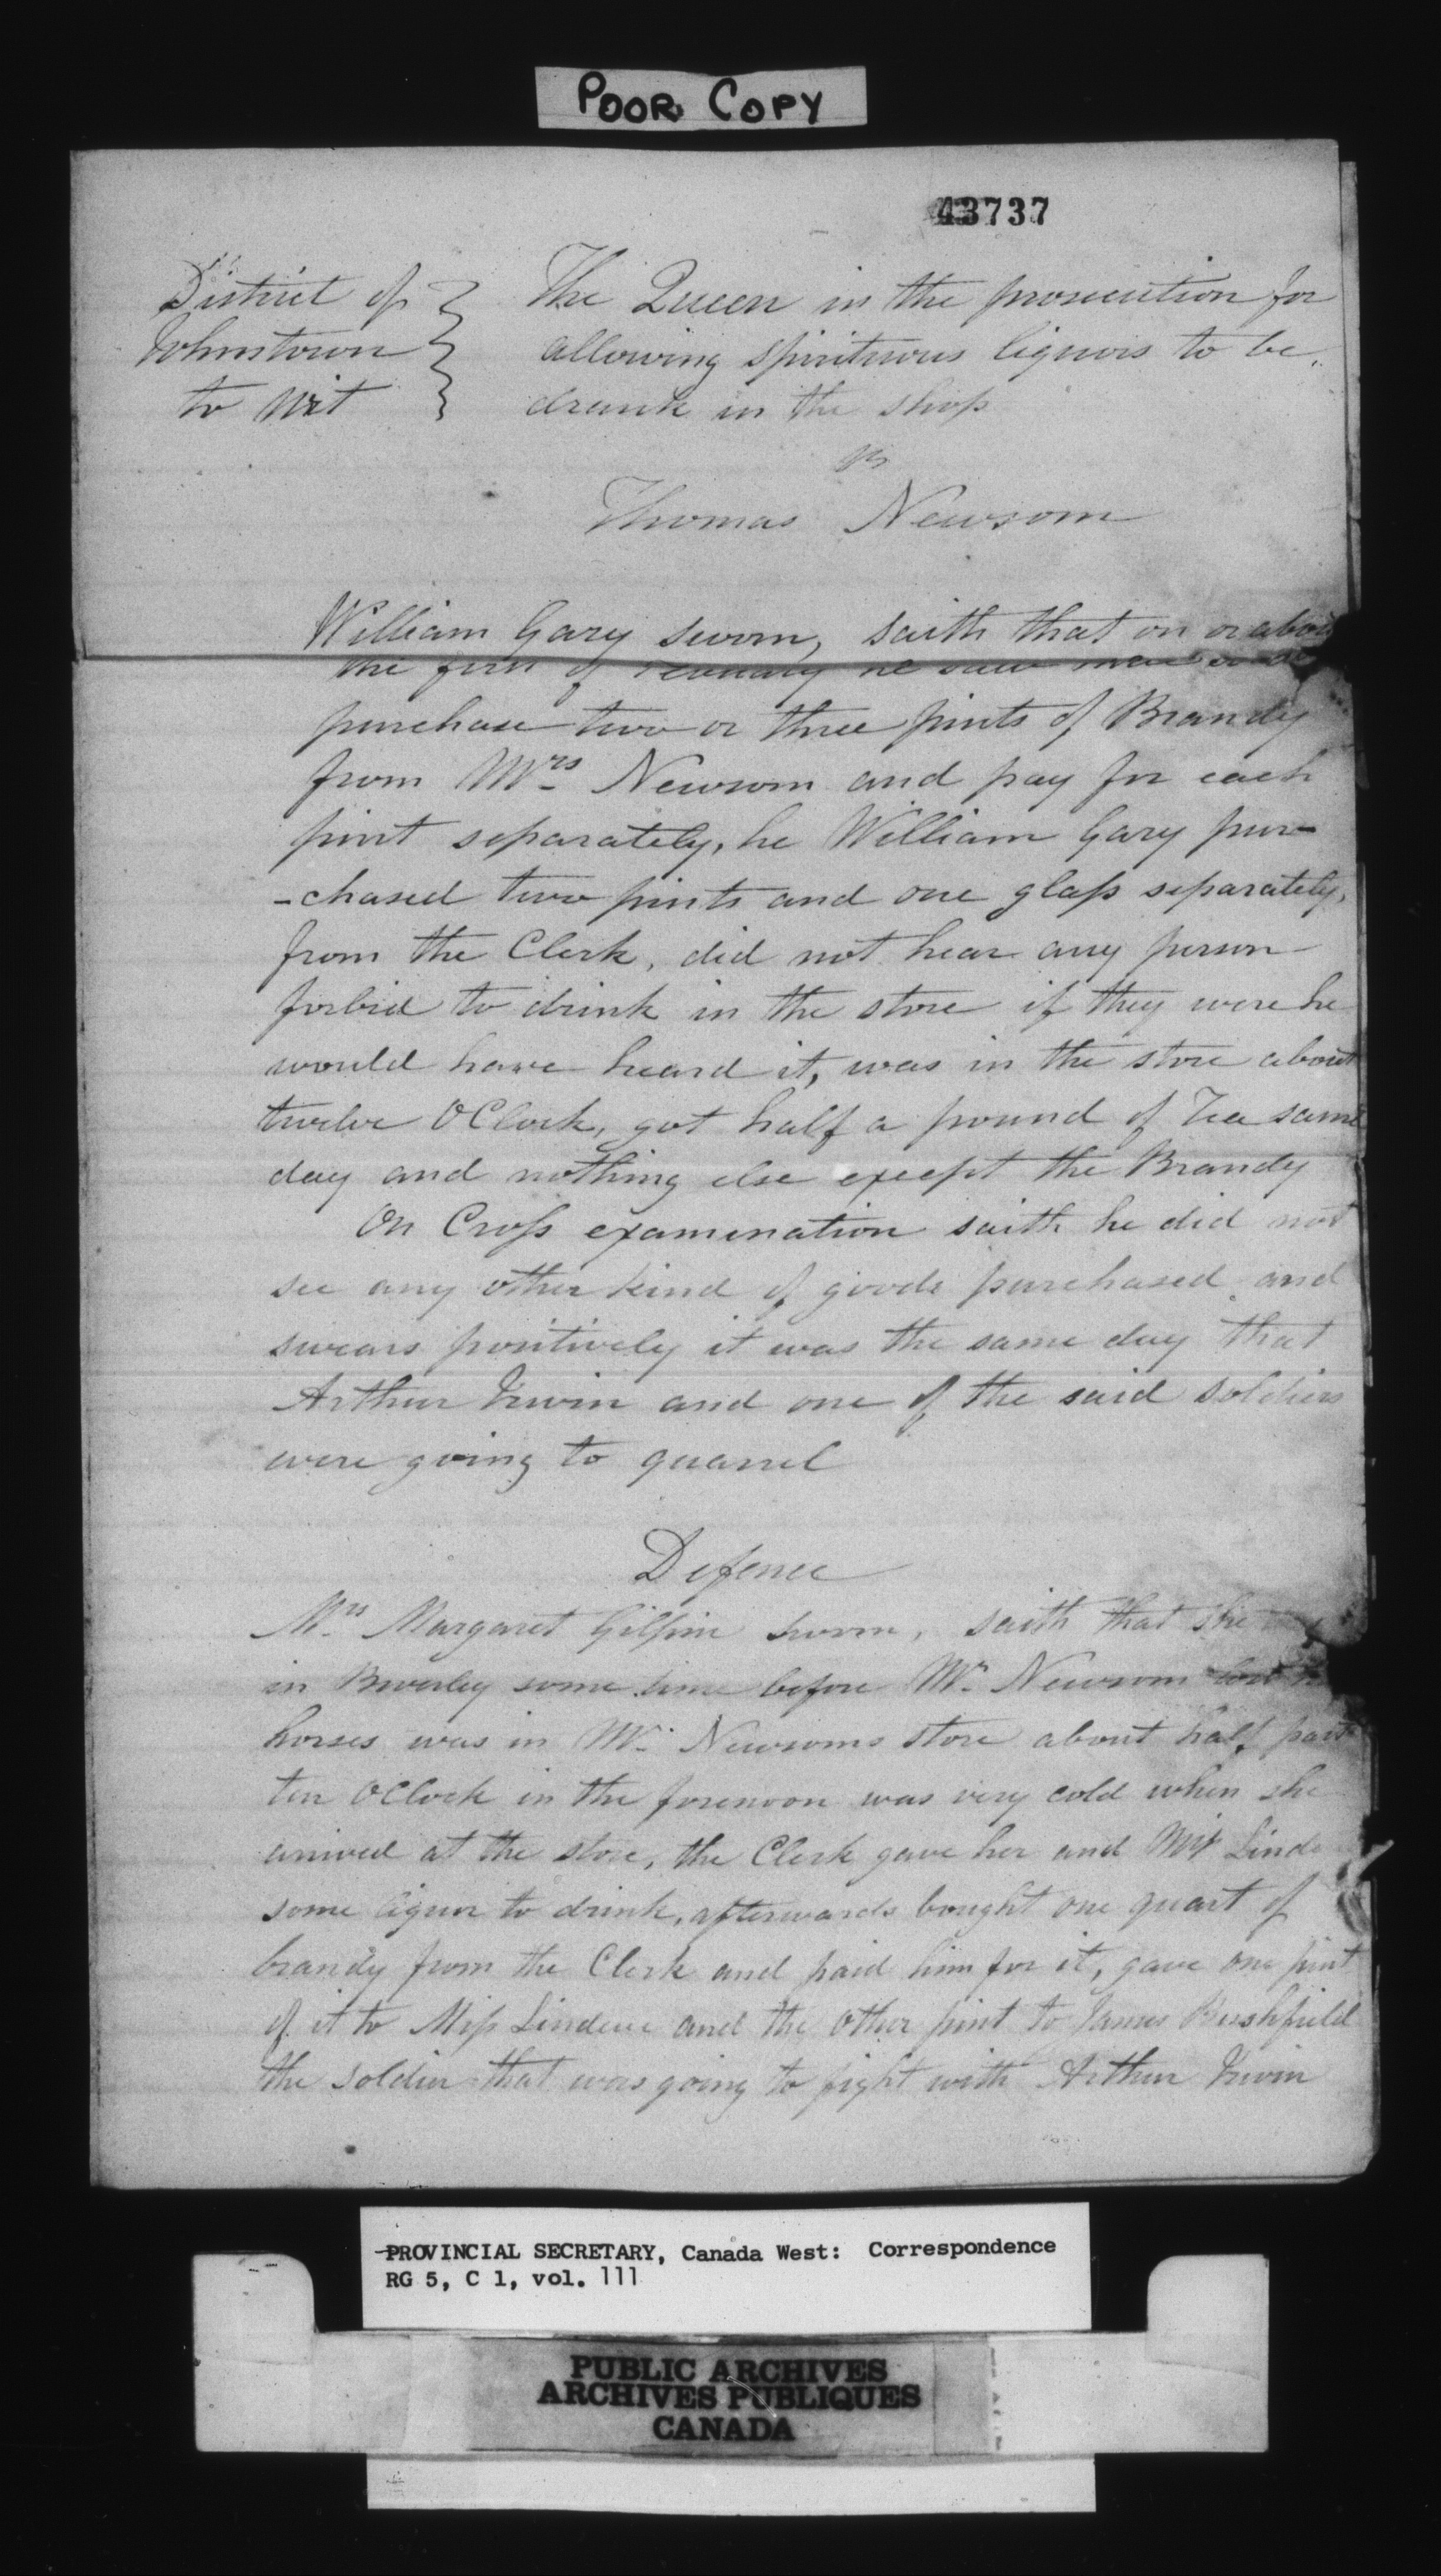 POOR COPY
43737
District of
Johnstown
to Wit
The Queen in the prosecution for
allowing spirituous liquors to be
drank in the shop
vs
Thomas Newsom
William Gary sworn, saith that on or about
the first of February he saw
purchase two or three pints of Brandy
from Mrs Newsom and pay for each
pint separately, he William Gary pur-
-chased two pints and one glass separately,
from the Clerk, did not hear any person
forbid to drink in the store if they were he
would have heard it, was in the store about
twelve OClock, got half a pound of Tea same
day and nothing else except the Brandy
On Cross examination saith he did not
see any other kind of goods purchased and
swears positively it was the same day that
Arthur Irwin and one of the said soldiers
were going to quarrel
Defence
Mrs Margaret Gilpin sworn, saith that she
in Beverley some time before Mr. Newsom lost
horses was in Mr. Newsoms store about half past
ten OClock in the forenoon was very cold when she
arrived at the store, the Clerk gave her and
some liquor to drink, afterwards bought one quart of
brandy from the Clerk and paid him for it, gave one pint
of it to Miss and the other pint to James Rushfield
the soldier that was going to fight with Arthur Irwin
PROVINCIAL SECRETARY, Canada West: Correspondence
RG 5, C 1, vol. 111
PUBLIC ARCHIVES
ARCHIVES PUBLIQUES
CANADA